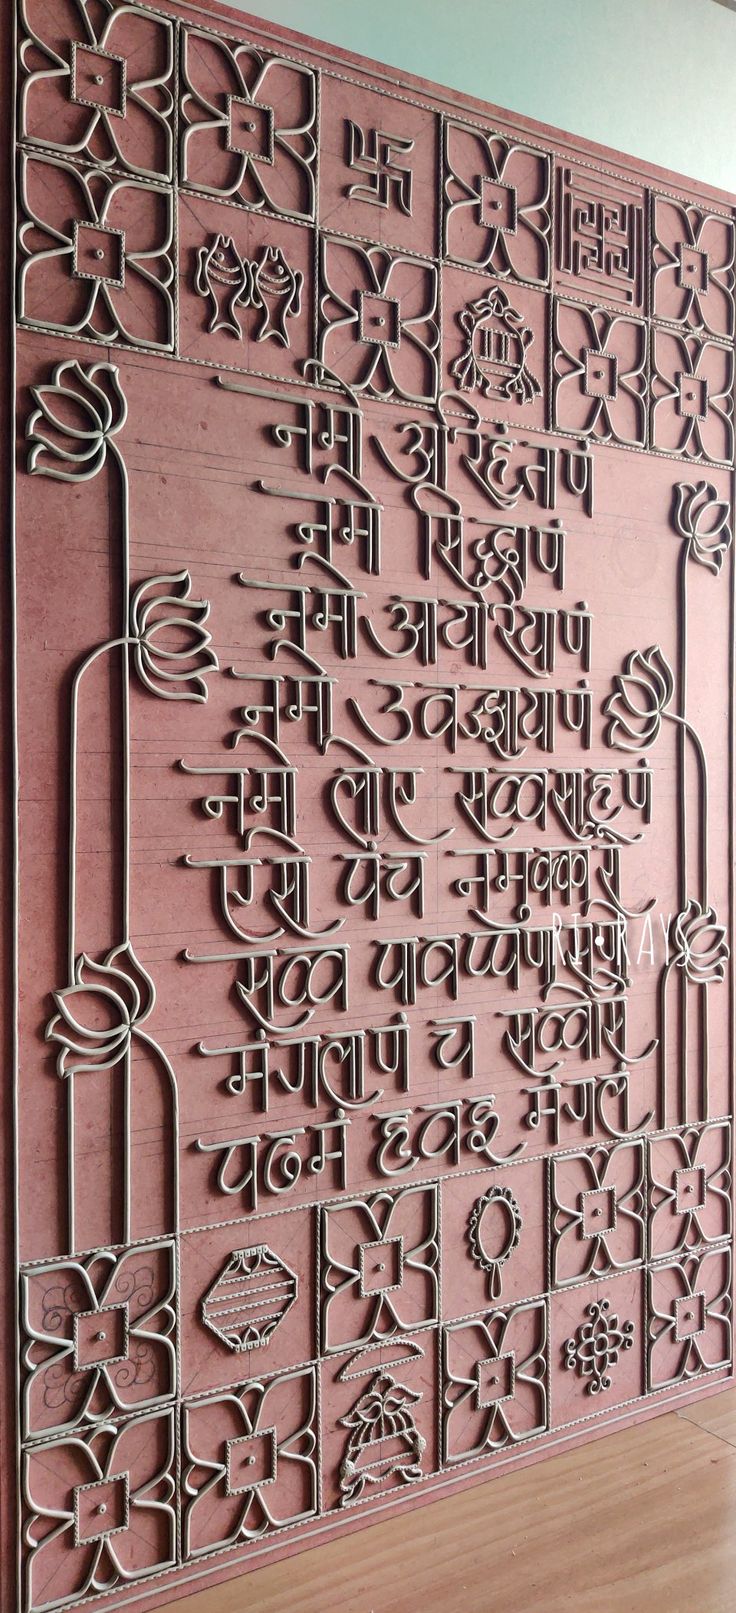 नमो अरिहंताणं
नमो सिद्धाणं
नमो आयरियाणं
नमो उवज्झायाणं
नमो लोए सव्वसाहूणं
एसो पंच नमुक्कारो
सव्व पावप्पणासणो
मंगलाणं च सव्वेसिं
पढमं हवइ मंगलं
RI•RAYS